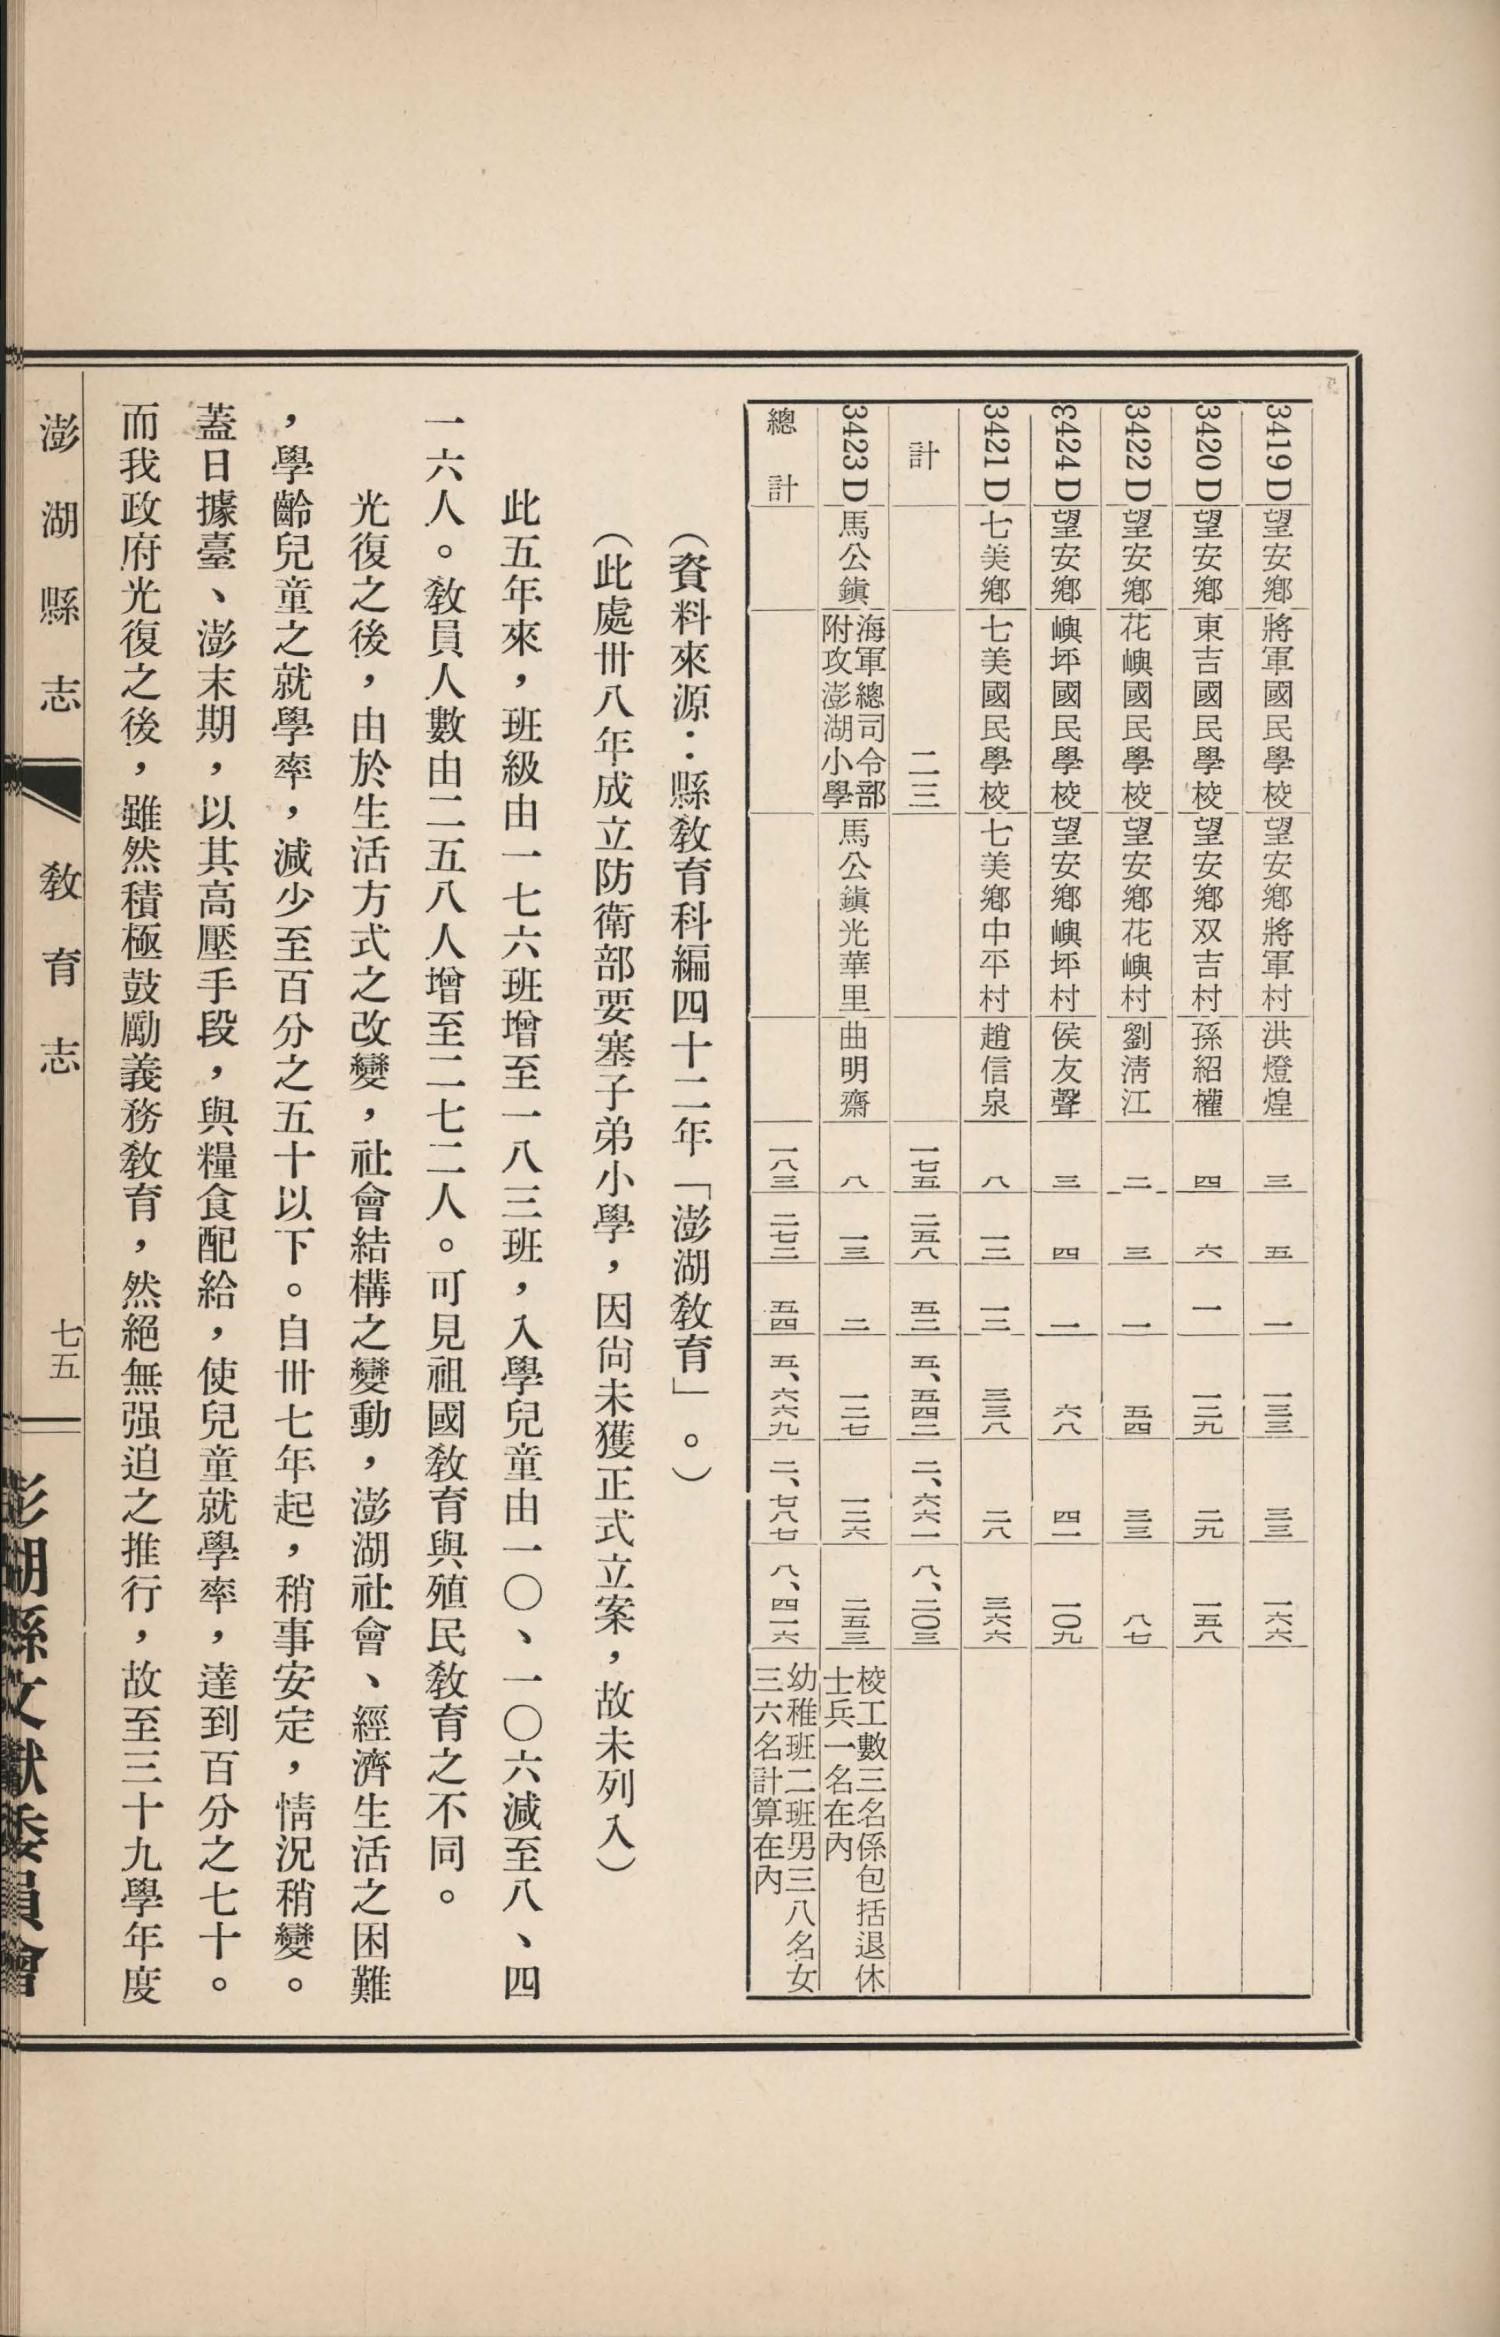 3419 D 望安鄉 將軍國民學校 望安鄉將軍村 洪燈煌 三 五 一 一三三 三三 一六六
3420 D 望安鄉 東吉國民學校 望安鄉双吉村 孫紹權 四 六 一 一二九 二九 一五八
3422 D 望安鄉 花嶼國民學校 望安鄉花嶼村 劉淸江 二 三 一 五四 三三 八七
3424 D 望安鄉 嶼坪國民學校 望安鄉嶼坪村 侯友聲 三 四 一 六八 四一 一〇九
3421 D 七美鄉 七美國民學校 七美鄉中平村 趙信泉 八 一二 一三 三三八 二八 三六六
計 二三 一七五 二五八 五二 五、五四二 二、六六一 八、二〇三
3423 D 馬公鎭 海軍總司令部附攻澎湖小學 馬公鎭光華里 曲明齋 八 一三 二 一二七 一二六 二五三 校工數三名係包括退休士兵一名在內
總計 一八三 二七二 五四 五、六六九 二、七八七 八、四一六 幼稚班二班男三八名女三六名計算在內
（資料來源：縣敎育科編四十二年「澎湖敎育」。）
（此處卅八年成立防衛部要塞子弟小學，因尙未獲正式立案，故未列入）
此五年來，班級由一七六班增至一八三班，入學兒童由一〇、一〇六減至八、四
一六人。敎員人數由二五八人增至二七二人。可見祖國敎育與殖民敎育之不同。
光復之後，由於生活方式之改變，社會結構之變動，澎湖社會、經濟生活之困難
，學齡兒童之就學率，減少至百分之五十以下。自卅七年起，稍事安定，情況稍變。
蓋日據臺、澎末期，以其高壓手段，與糧食配給，使兒童就學率，達到百分之七十。
而我政府光復之後，雖然積極鼓勵義務敎育，然絕無强迫之推行，故至三十九學年度
澎湖縣志 敎育志 七五
澎湖縣文獻委員會